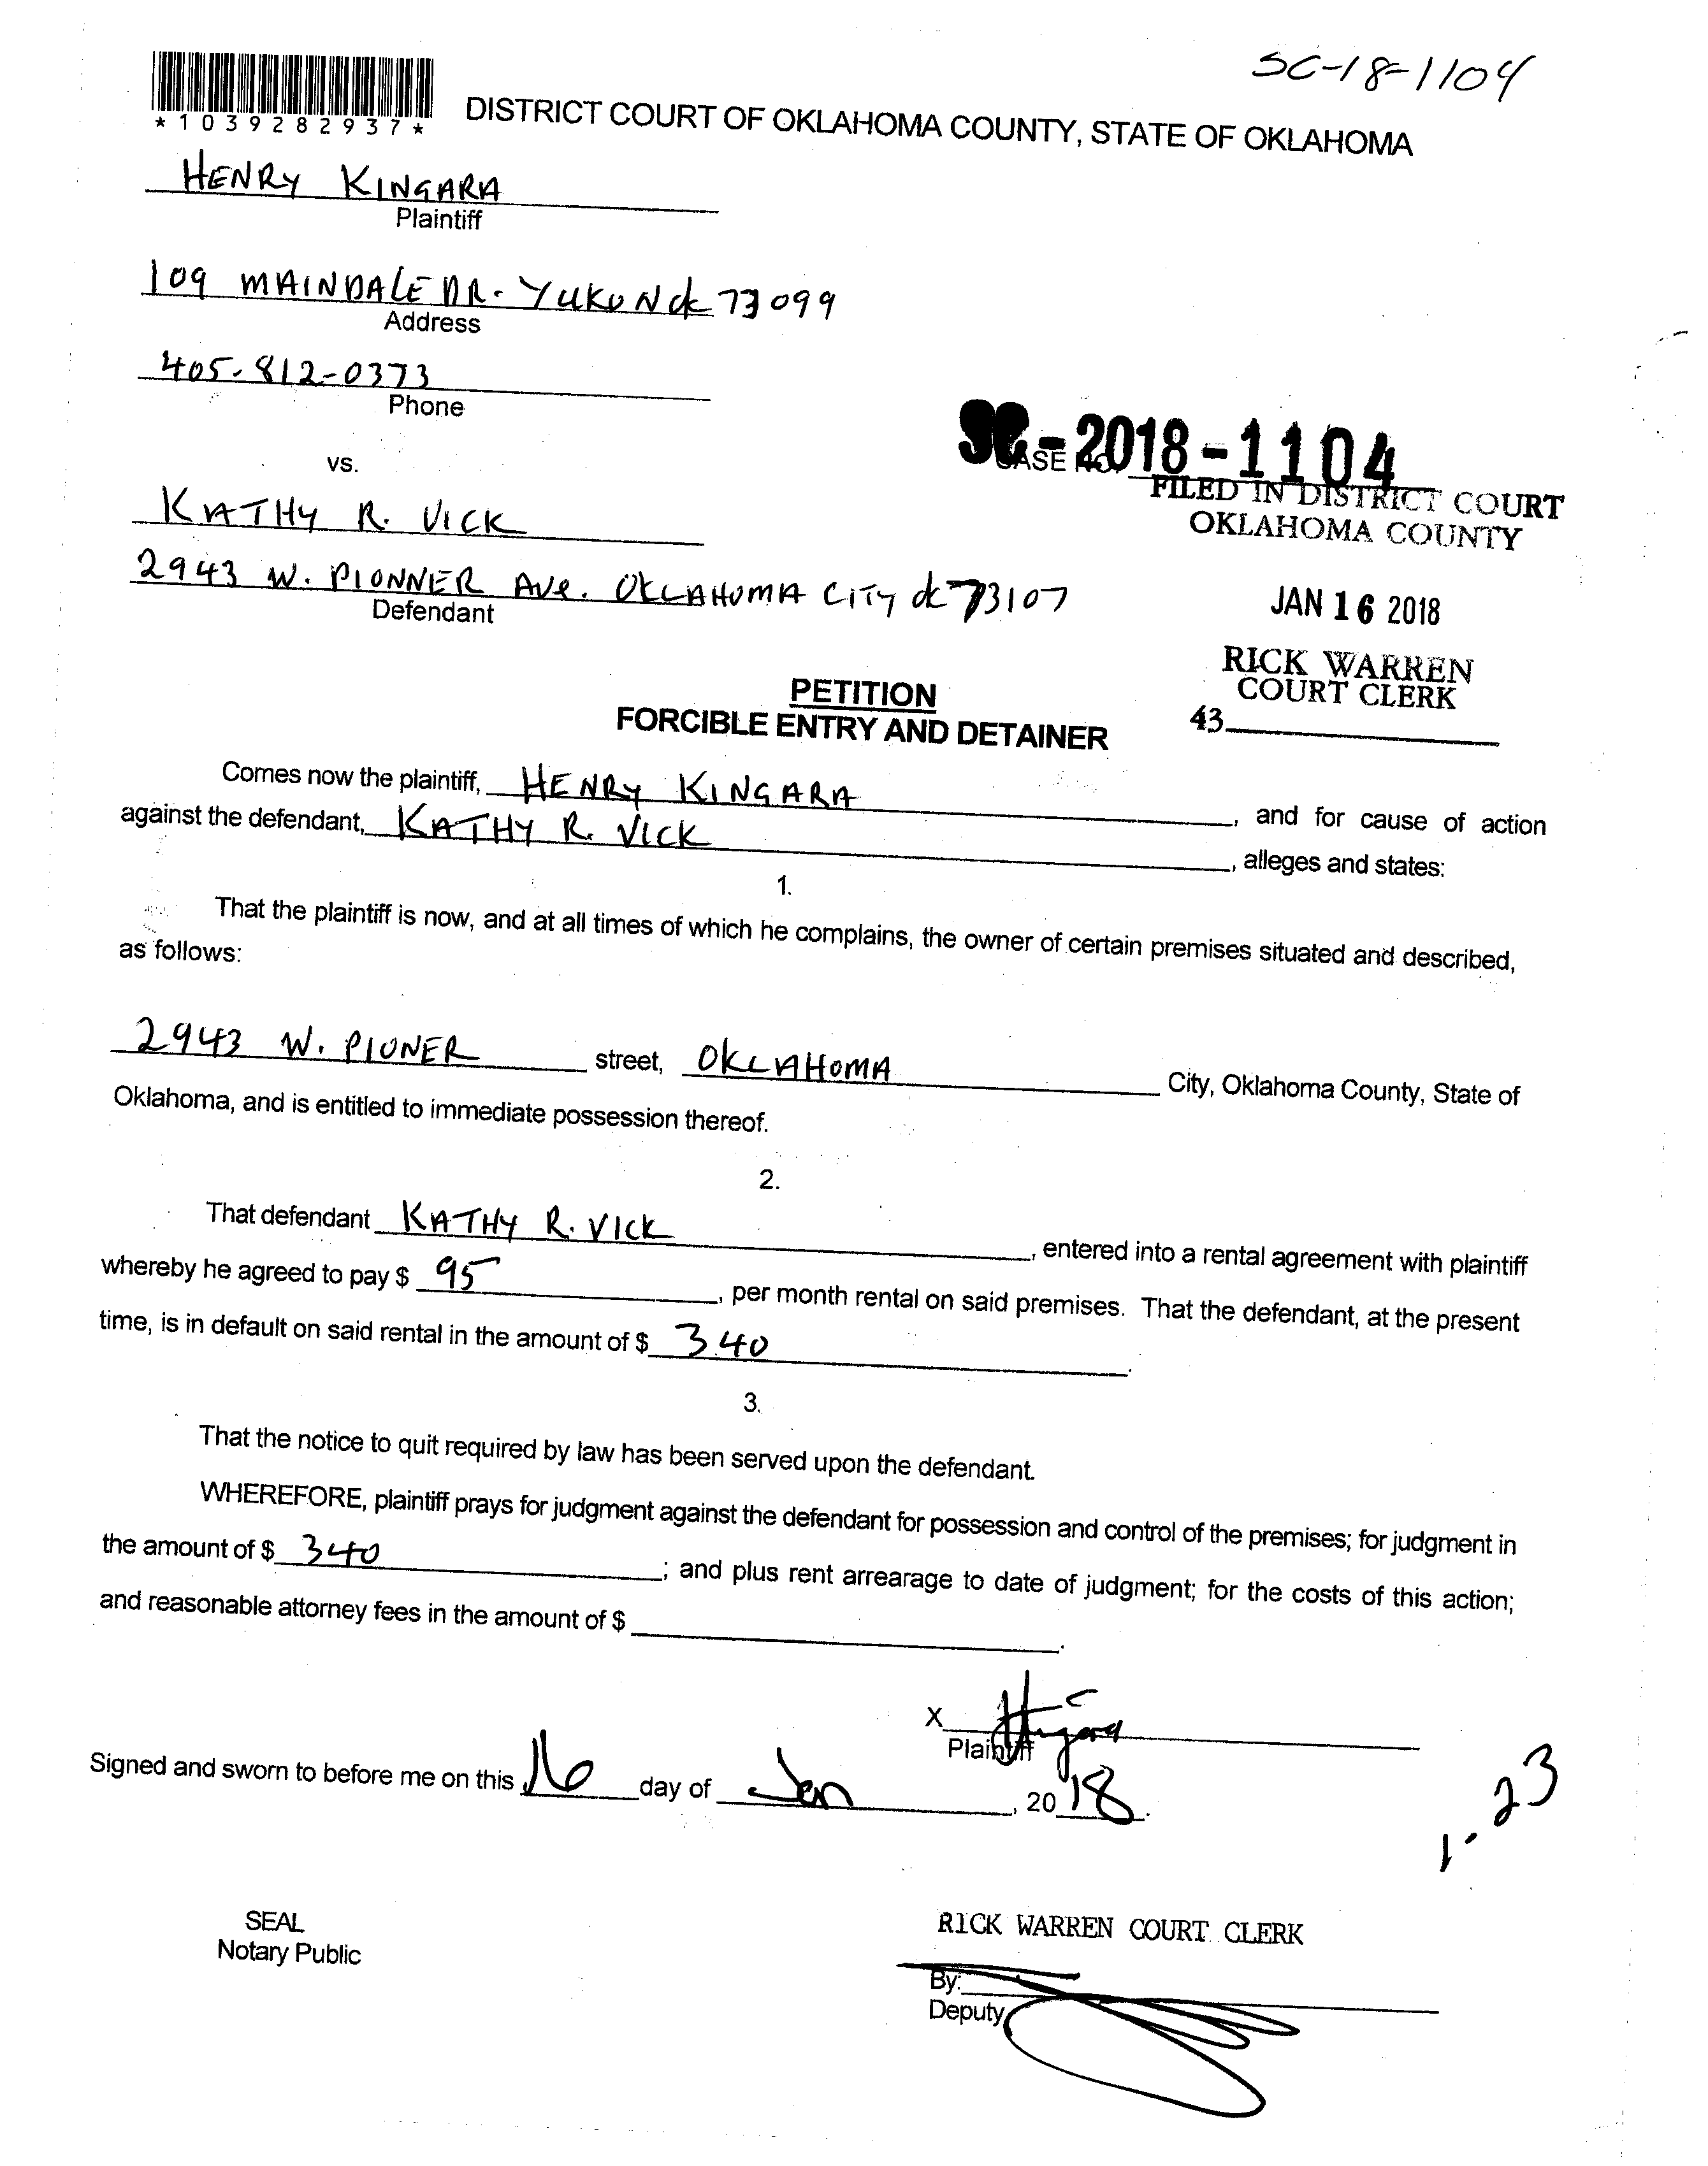 SC-18-1104
*1039282937*
DISTRICT COURT OF OKLAHOMA COUNTY, STATE OF OKLAHOMA
HENRY KINGARA
Plaintiff
109 MAINDALE DR. YUKON OK 73099
Address
405-812-0373
Phone
vs.
SC-2018-1104
CASE NO.
FILED IN DISTRICT COURT
OKLAHOMA COUNTY
KATHY R. VICK
2943 W. PIONNER AVE. OKLAHOMA CITY OK 73107
Defendant
JAN 16 2018
RICK WARREN
COURT CLERK
43
PETITION
FORCIBLE ENTRY AND DETAINER
Comes now the plaintiff, HENRY KINGARA, and for cause of action
against the defendant, KATHY R. VICK, alleges and states:
1.
That the plaintiff is now, and at all times of which he complains, the owner of certain premises situated and described,
as follows:
2943 W. PIONER street, OKLAHOMA City, Oklahoma County, State of
Oklahoma, and is entitled to immediate possession thereof.
2.
That defendant KATHY R. VICK, entered into a rental agreement with plaintiff
whereby he agreed to pay $ 95, per month rental on said premises. That the defendant, at the present
time, is in default on said rental in the amount of $ 340.
3.
That the notice to quit required by law has been served upon the defendant.
WHEREFORE, plaintiff prays for judgment against the defendant for possession and control of the premises; for judgment in
the amount of $ 340; and plus rent arrearage to date of judgment; for the costs of this action;
and reasonable attorney fees in the amount of $ .
X
Plaintiff
Signed and sworn to before me on this 16 day of Jan, 2018.
1-23
SEAL
Notary Public
RICK WARREN COURT CLERK
By:
Deputy